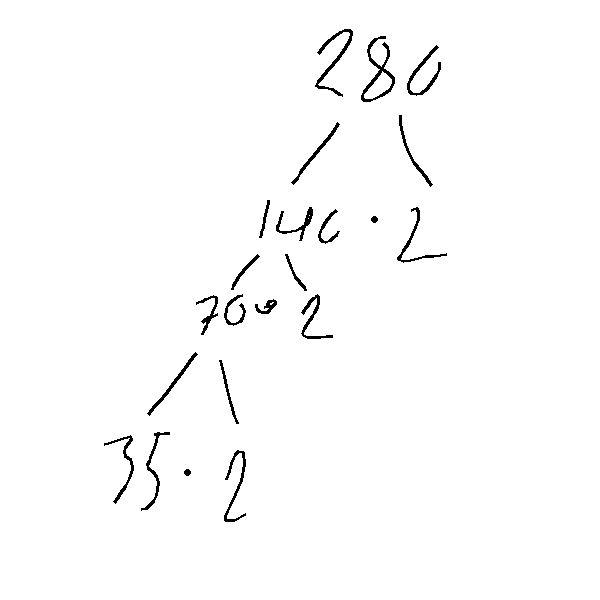 280
140 · 2
70 · 2
35 · 2